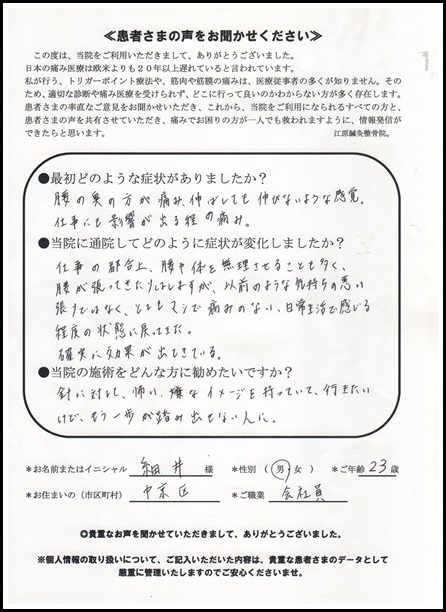 ≪患者さまの声をお聞かせください≫
この度は、当院をご利用いただきまして、ありがとうございました。
日本の痛み医療は欧米よりも２０年以上遅れていると言われています。
私が行う、トリガーポイント療法や、筋肉や筋膜の痛みは、医療従事者の多くが知りません。そのため、適切な診断や痛み医療を受けられず、どこに行って良いのかわからない方が多く存在します。
患者さまの率直なご意見をお聞かせいただき、これから、当院をご利用になられるすべての方と、
患者さまの声を共有させていただき、痛みでお困りの方が一人でも救われますように、情報発信ができたらと思います。
江原鍼灸整骨院。
●最初どのような症状がありましたか？
腰の奥の方が痛み、伸ばしても伸びないような感覚。
仕事にも影響が出る程の痛み。
●当院に通院してどのように症状が変化しましたか？
仕事の都合上、腰や体を無理させることも多く、
腰が張ってきたりはしますが、以前のような気持ちの悪い
張りではなく、とてもマシで痛みのない、日常生活で感じる
程度の状態に戻ってきた。
確実に効果が出てきている。
●当院の施術をどんな方に勧めたいですか？
針に対して、怖い、嫌なイメージを持っていて、行きたい
けど、もう一歩が踏み出せない人に。
＊お名前またはイニシャル 細井 様 ＊性別（男・女） ＊ご年齢 23 歳
＊お住まいの（市区町村） 中京区 ＊ご職業 会社員
◎貴重なお声を聞かせていただきまして、ありがとうございました。
※個人情報の取り扱いについて、ご記入いただいた内容は、貴重な患者さまのデータとして
厳重に管理いたしますのでご安心くださいませ。